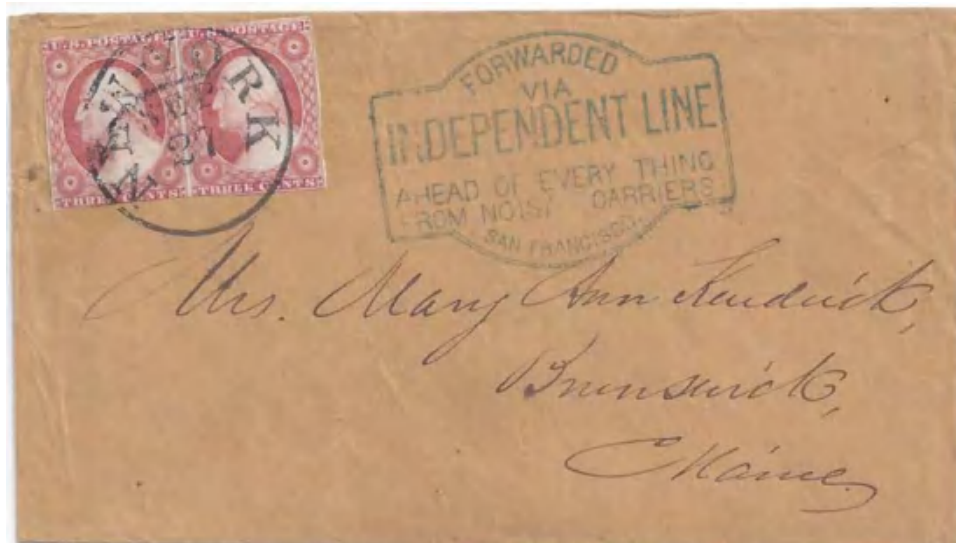 U.S. POSTAGE U.S. POSTAGE
THREE CENTS THREE CENTS
NEW YORK
FEB
27
FORWARDED
VIA
INDEPENDENT LINE
AHEAD OF EVERY THING
FROM NOISY CARRIERS
SAN FRANCISCO
Mrs. Mary Ann Kendrick,
Brunswick,
Maine.